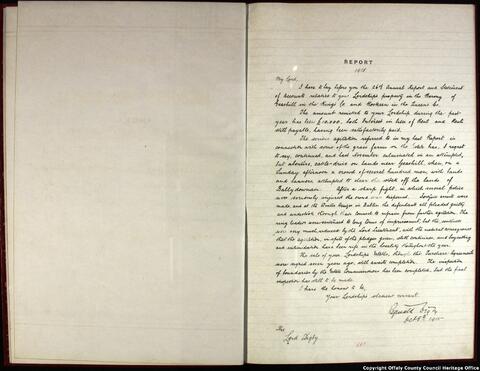 REPORT
1911
My Lord,
I have to lay before you the 26th Annual Report and Statement
of Accounts relative to your Lordships property in the Barony of
Geashill in the Kings Co. and in the Queens Co.
The amount remitted to your Lordship during the past
year has been £10,000, both Interest in lieu of Rent and Rent
still payable, having been satisfactorily paid.
The serious agitation referred to in my last Report in
connection with some of the grass farms on the Estate has, I regret
to say, continued, and last November culminated in an attempted,
but abortive, cattle-drive on lands near Geashill, when, on a
Sunday afternoon a crowd of several hundred men with bands
and banners attempted to clear the stock off the lands of
Ballydownan. After a sharp fight, in which several police
were seriously injured the crowd was dispersed. arrests were
made and at the Winter Assizes in Dublin the defendants all pleaded guilty
and undertook through their counsel to refrain from further agitation. The
ring leaders were sentenced to long terms of imprisonment, but the sentences
were very much reduced by the Lord Lieutenant, with the natural consequence
that the agitation, in spite of the pledges given, still continued and boycotting
and intimidation have been rife in the locality throughout the year.
The sale of your Lordships Estate, though the Purchase Agreements
were signed seven years ago, still awaits completion. The inspection
of boundaries by the Estates Commissioners has been completed, but the final
inspection has still to be made.
I have the honour to be,
Your Lordships obedient servant
Reginald Digby
Oct 5th 1911
The
Lord Digby.
© Copyright Offaly County Council Heritage Office